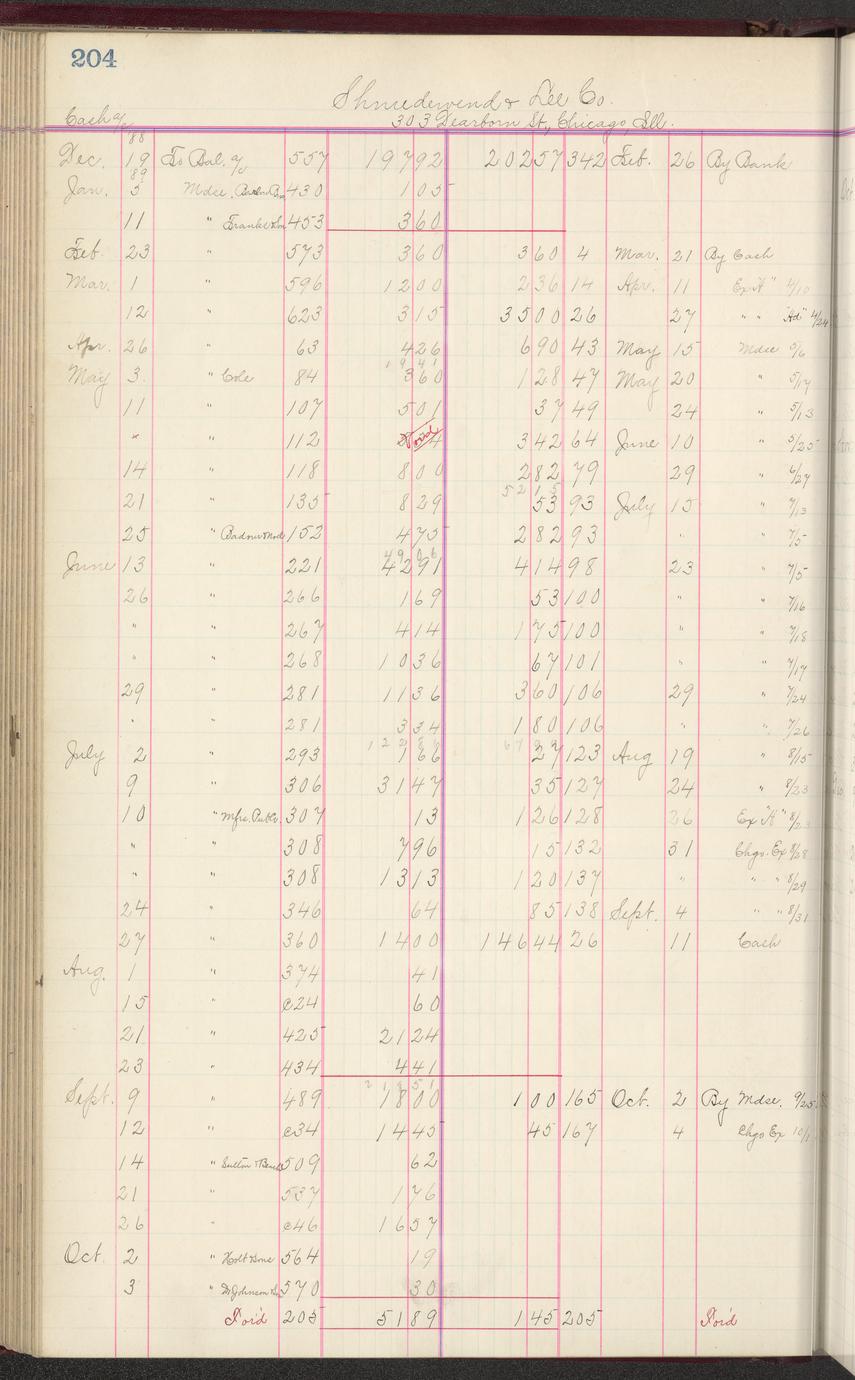 204
Shniedewend & Lee Co.
Cash a/c 303 Dearborn St., Chicago, Ill.
'88
Dec. 19 To Bal. a/c 557 197 92 202 57 342 Feb. 26 By Bank
'89
Jan. 5 Mdse. 430 1 05
11 " 453 3 60
Feb. 23 " 573 3 60 3 60 4 Mar. 21 By Cash
Mar. 1 " 596 12 00 2 36 14 Apr. 11 Ex "A" 4/10
12 " 623 3 15 35 00 26 27 " " "Ad" 4/24
Apr. 26 " 63 4 26 6 90 43 May 15 Mdse 5/6
19 41
May 3 " Cole 84 3 60 1 28 47 May 20 " 5/17
11 " 107 5 01 37 49 24 " 5/13
" " 112 Void 3 42 64 June 10 " 5/25
14 " 118 8 00 2 82 79 29 " 6/27
52 15
21 " 135 8 29 53 93 July 15 " 7/13
25 " 152 4 75 2 82 93 " " 7/5
49 06
June 13 " 221 42 91 4 14 98 23 " 7/5
26 " 266 1 69 53 100 " 7/16
" " 267 4 14 1 75 100 " " 7/18
" " 268 10 36 67 101 " " 7/17
29 " 281 11 36 3 60 106 29 " 7/24
" " 281 3 34 1 80 106 " " 7/26
July 2 " 293 1 66 27 123 Aug 19 " 8/15
9 " 306 31 47 35 127 24 " 8/23
10 " Mfrs. Pub. 307 13 1 26 128 26 Ex "A" 8/23
" " 308 7 96 15 132 31 Chgo. Ex 8/28
" " 308 13 13 1 20 137 " " " 8/29
24 " 346 64 85 138 Sept. 4 " " 8/31
27 " 360 14 00 146 44 26 11 Cash
Aug. 1 " 374 41
15 " c24 60
21 " 425 21 24
23 " 434 4 41
Sept. 9 " 489 18 00 1 00 165 Oct. 2 By Mdse. 9/25
12 " c34 14 45 45 167 4 Chgo Ex 10/1
14 " 509 62
21 " 537 1 76
26 " c46 16 57
Oct. 2 " Holt 564 19
3 " Johnson 570 30
For'd 205 51 89 1 45 205 For'd